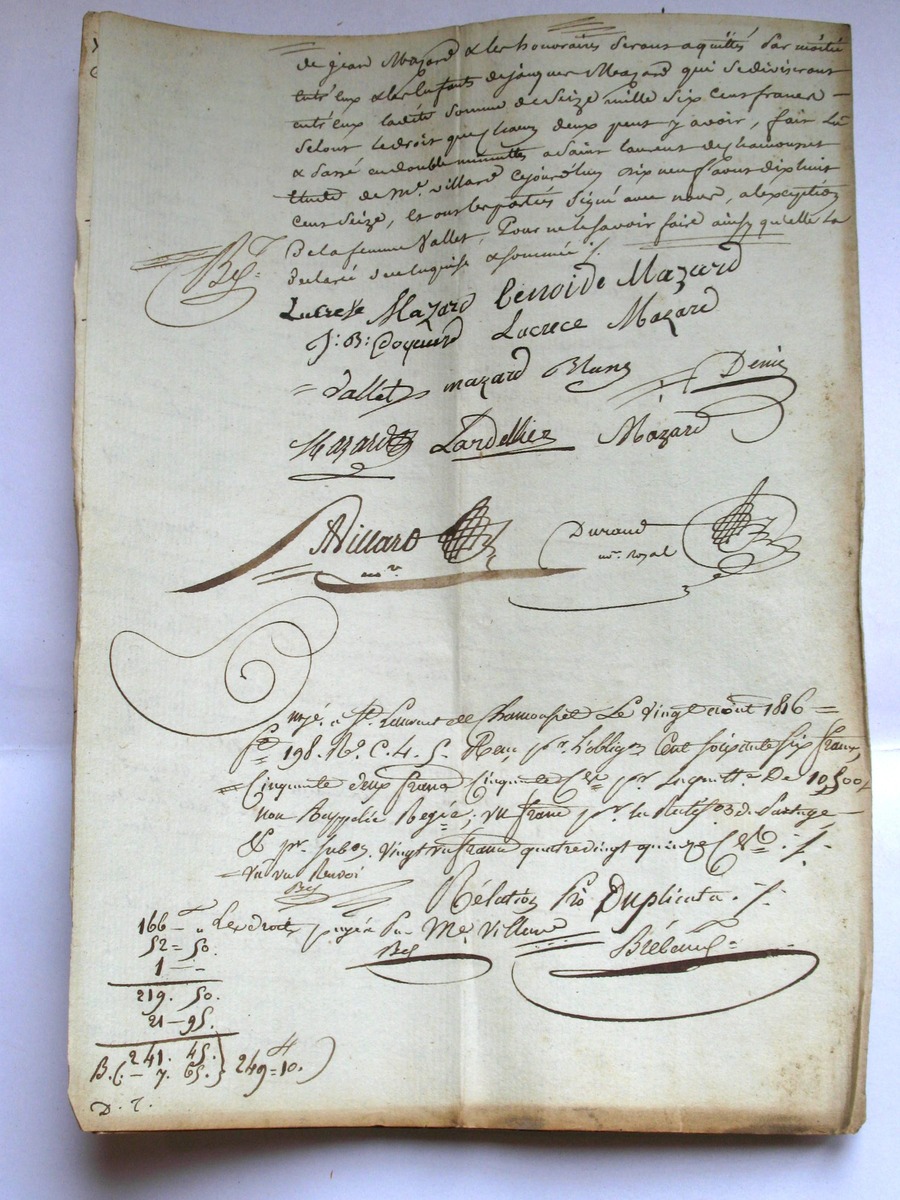 de jean Mazard & les honoraires seront aquittés par moitié
entr'eux & les Enfants de jacques Mazard qui se diviseront
entr'eux ladite somme de seize mille six cent francs
selont le droit que chacun deux peut y avoir, fait lu
& passé en double minuttes a Saint laurent de chamousset
Etude de Me. villard cejourdhui dix neuf aout dix huit
cent seize, Et ont les parties signé avec nous, a lexception
De la femme Vallet, Pour ne le savoir faire ainsy qu'elle la
declaré de ce enquise & sommée ./.
Lucresse Mazard Benoide Mazard
J: B: Lucrece Mazard
Vallet mazard Blanc Denis
Mazard Lardellier Mazard
Villard Durand
nore. nore. royal
St. Laurent de Chamousset Le vingt août 1816 =
fo. 198. Ro. C. 4. 5. Reçu pr. l'oblign. Cent soixante six francs
= Cinquante deux francs Cinquante Cmes pr. la quittce. De 10,500f
non Rappelée un franc pr. la de Partage
& pr. subon. vingt un francs quatrevingt quinze Cmes ./.
= un Renvoi
Rélation Pro Duplicata ./.
166 — " Les droits payés Par Me Villard
52 = 50.
1 — -
219. 50.
21 — 95.
241. 45.
B. C. — 7. 65. } 249 = 10.
D. T.